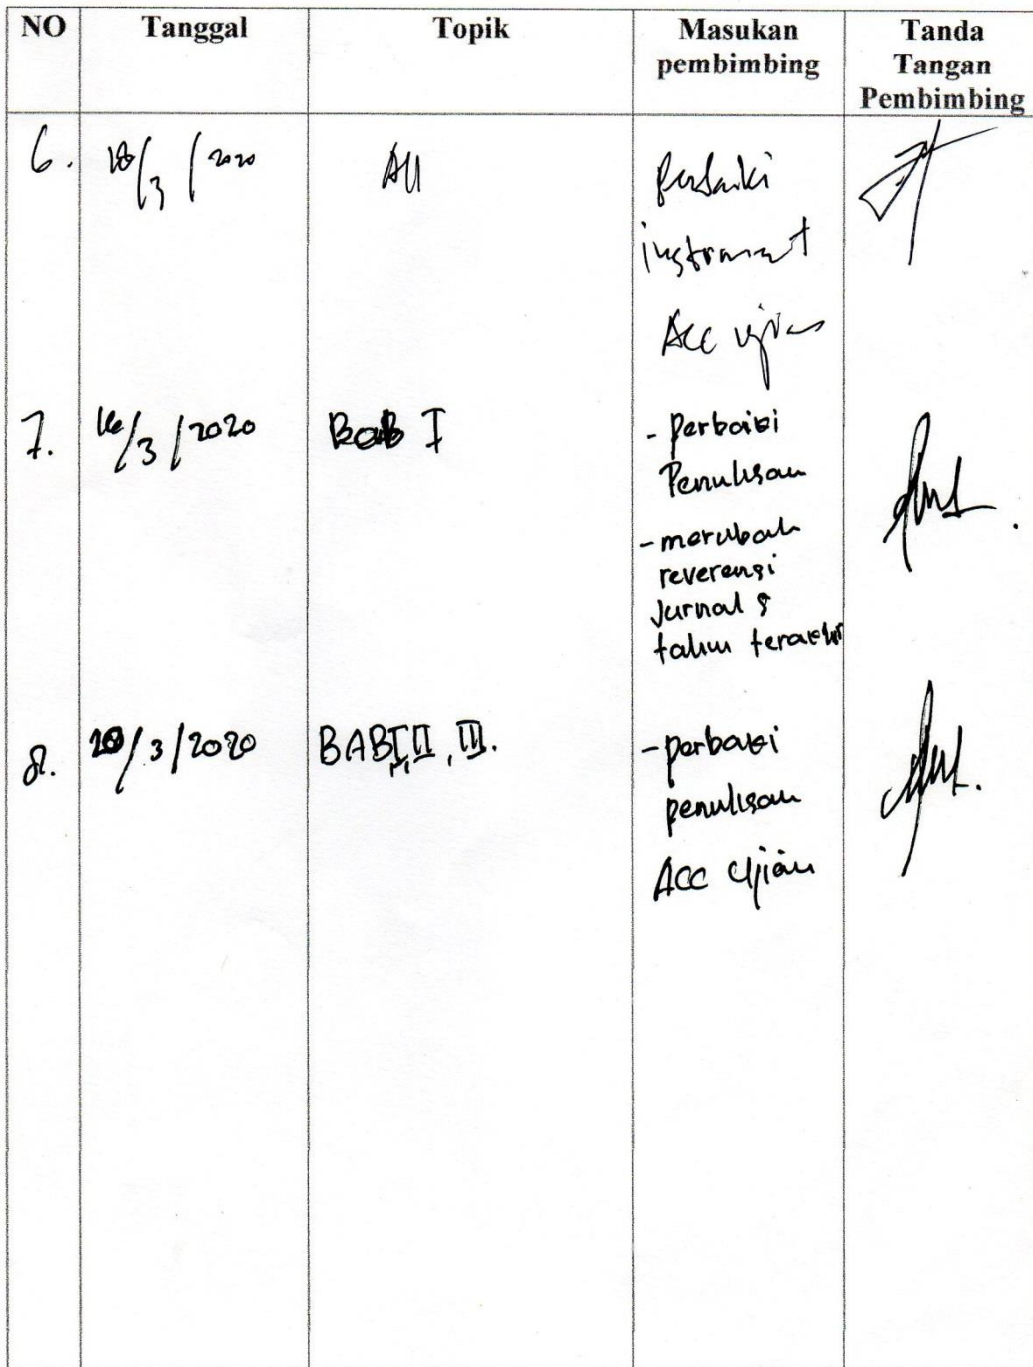 NO Tanggal Topik Masukan pembimbing Tanda Tangan Pembimbing
6. /3/2020 All
instrument
Acc ujian
7. 16/3/2020 BaB I - Perbaiki
Penulisan
- merubah
reverensi
Jurnal 5
tahun terakhir
8. /3/2020 BAB I, II, III. - perbaiki
penulisan
ACC Ujian